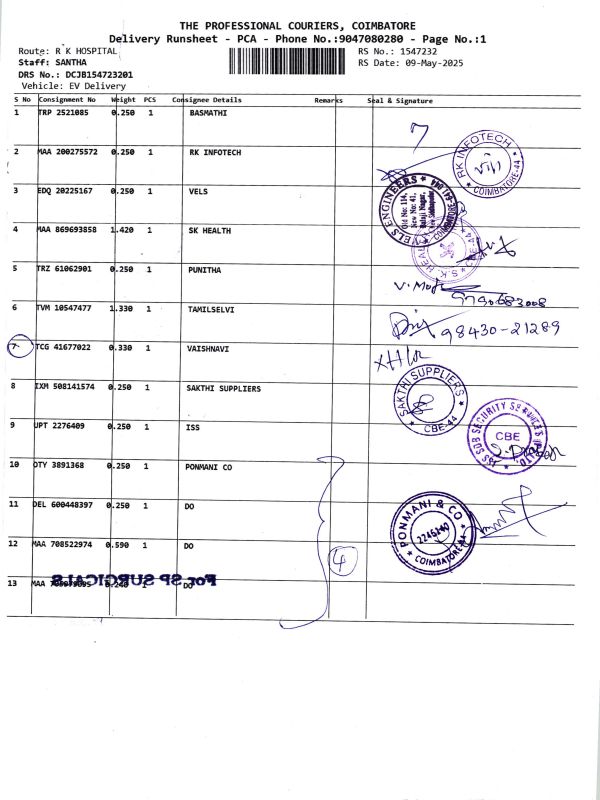 THE PROFESSIONAL COURIERS, COIMBATORE
Delivery Runsheet - PCA - Phone No.:9047080280 - Page No.:1
Route: R K HOSPITAL RS No.: 1547232
Staff: SANTHA RS Date: 09-May-2025
DRS No.: DCJB154723201
Vehicle: EV Delivery
S No Consignment No Weight PCS Consignee Details Remarks Seal & Signature
1 TRP 2521085 0.250 1 BASMATHI
2 MAA 200275572 0.250 1 RK INFOTECH
RK INFOTECH COIMBATORE-44
3 EDQ 20225167 0.250 1 VELS
VELS ENGINEERS Old No: 114, New No: 41,
4 MAA 869693858 1.420 1 SK HEALTH
S.K. HEAL CBE-44
5 TRZ 61062901 0.250 1 PUNITHA
9790683008
6 TVM 10547477 1.330 1 TAMILSELVI
98430-21289
7 TCG 41677022 0.330 1 VAISHNAVI
8 IXM 508141574 0.250 1 SAKTHI SUPPLIERS
SAKTHI SUPPLIERS CBE-44
9 UPT 2276409 0.250 1 ISS
ISS SDB SECURITY CBE
10 OTY 3891368 0.250 1 PONMANI CO
11 DEL 600448397 0.250 1 DO
PONMANI & CO COIMBATORE-44
12 MAA 708522974 0.590 1 DO
4
13 MAA 0.240 1 DO
For SP SURGICALS